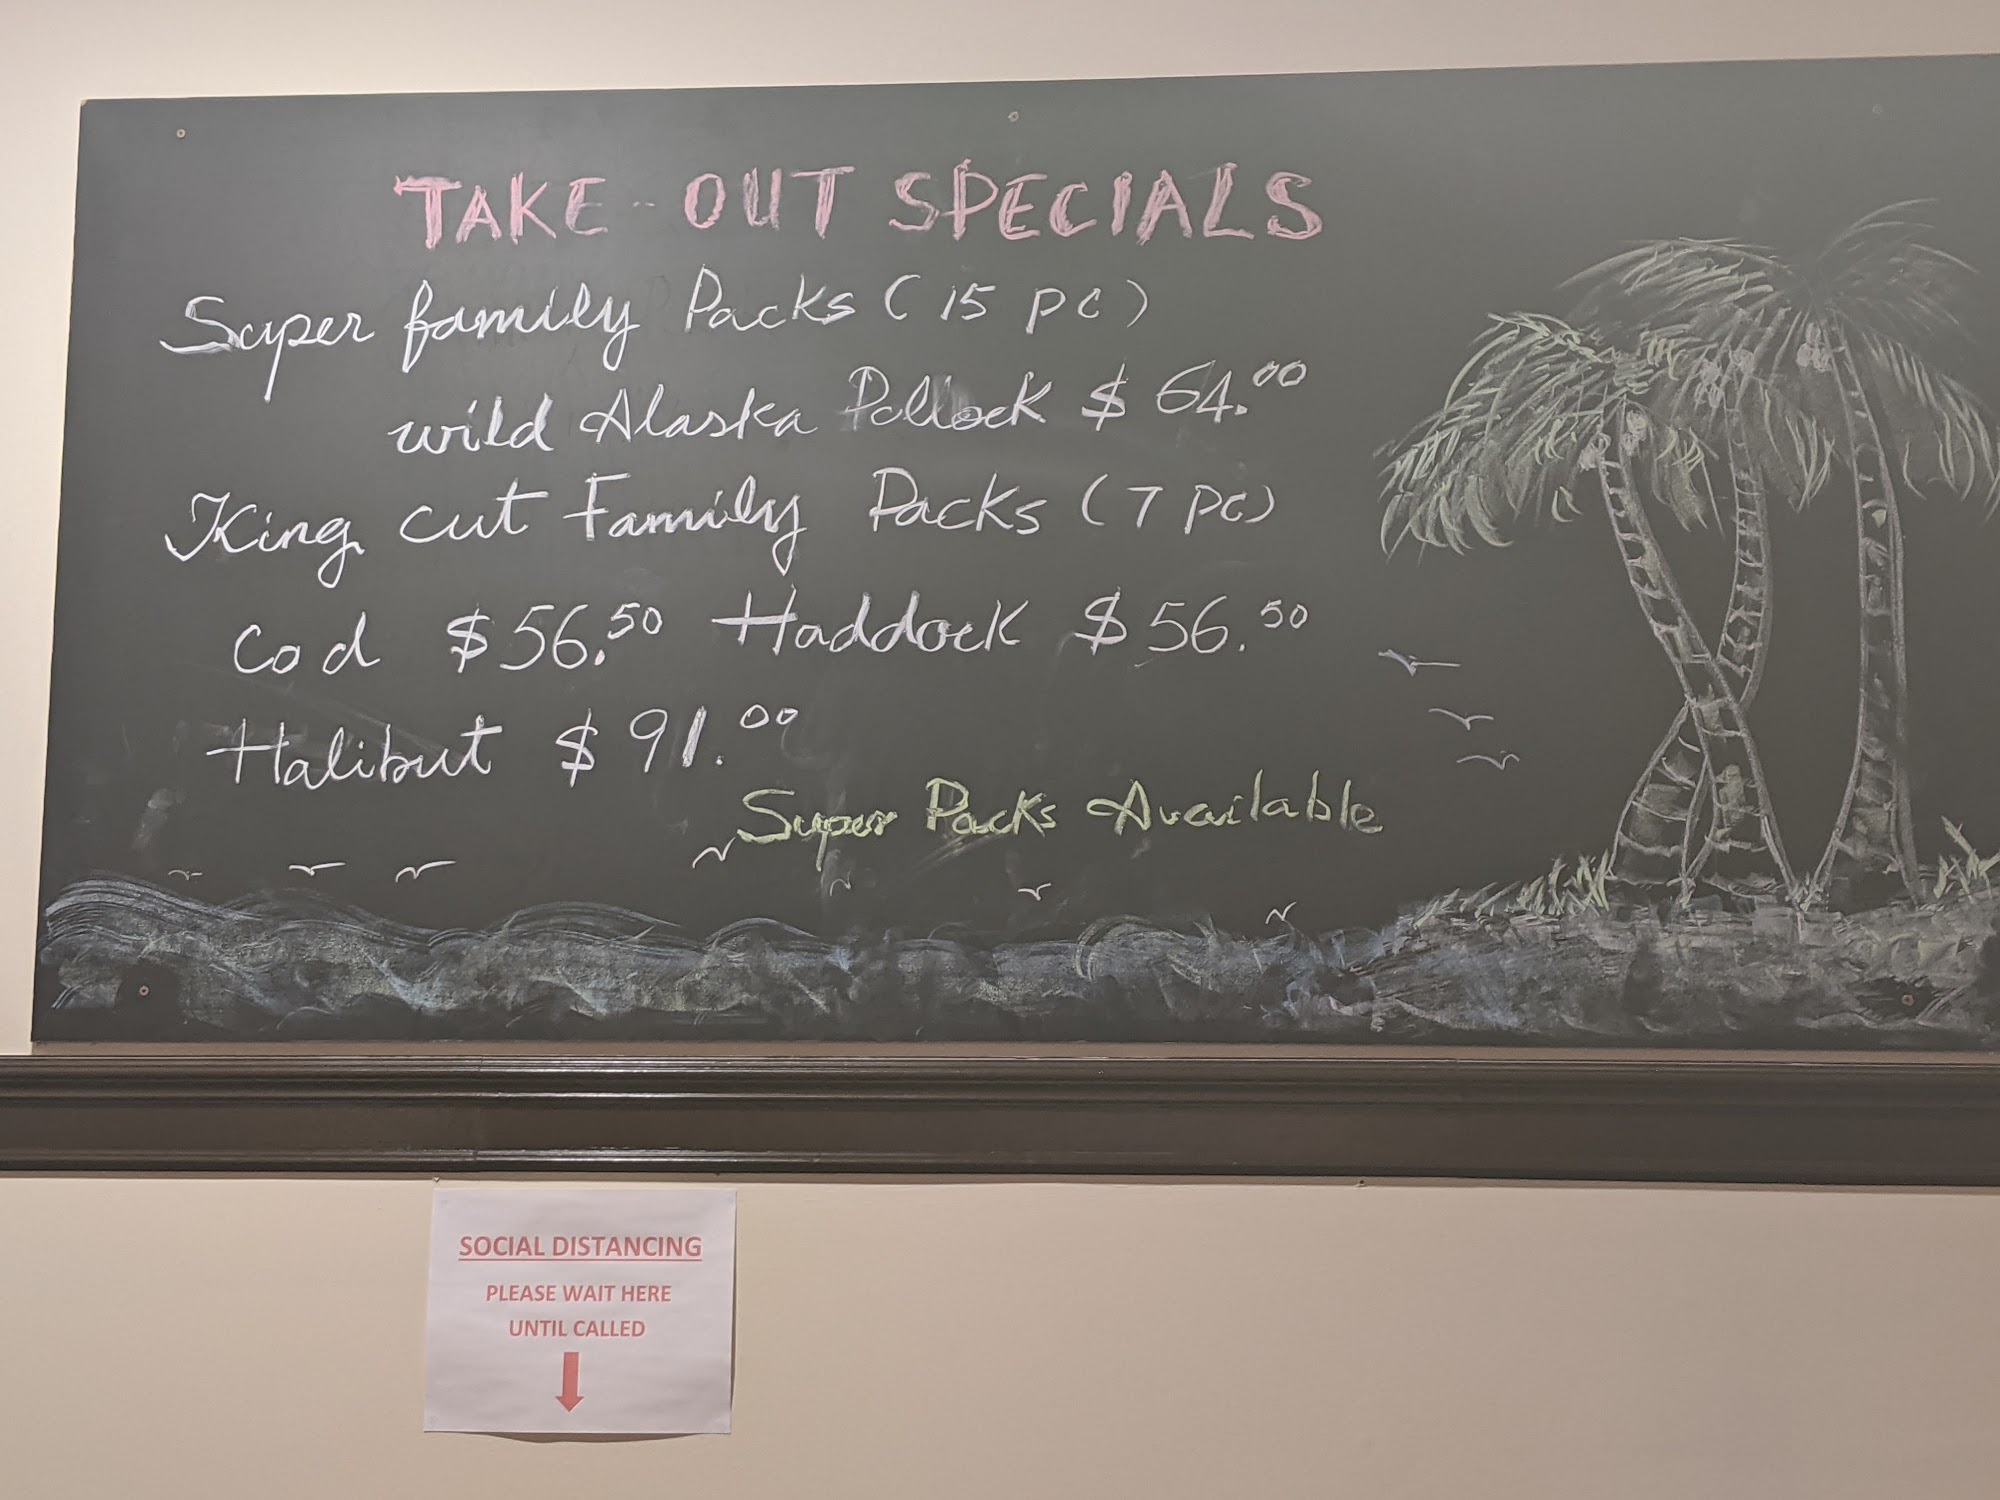 TAKE-OUT SPECIALS
Super family Packs (15 pc)
wild Alaska Pollock $64.00
King cut Family Packs (7 pc)
Cod $56.50 Haddock $56.50
Halibut $91.00
Super Packs Available
SOCIAL DISTANCING
PLEASE WAIT HERE
UNTIL CALLED